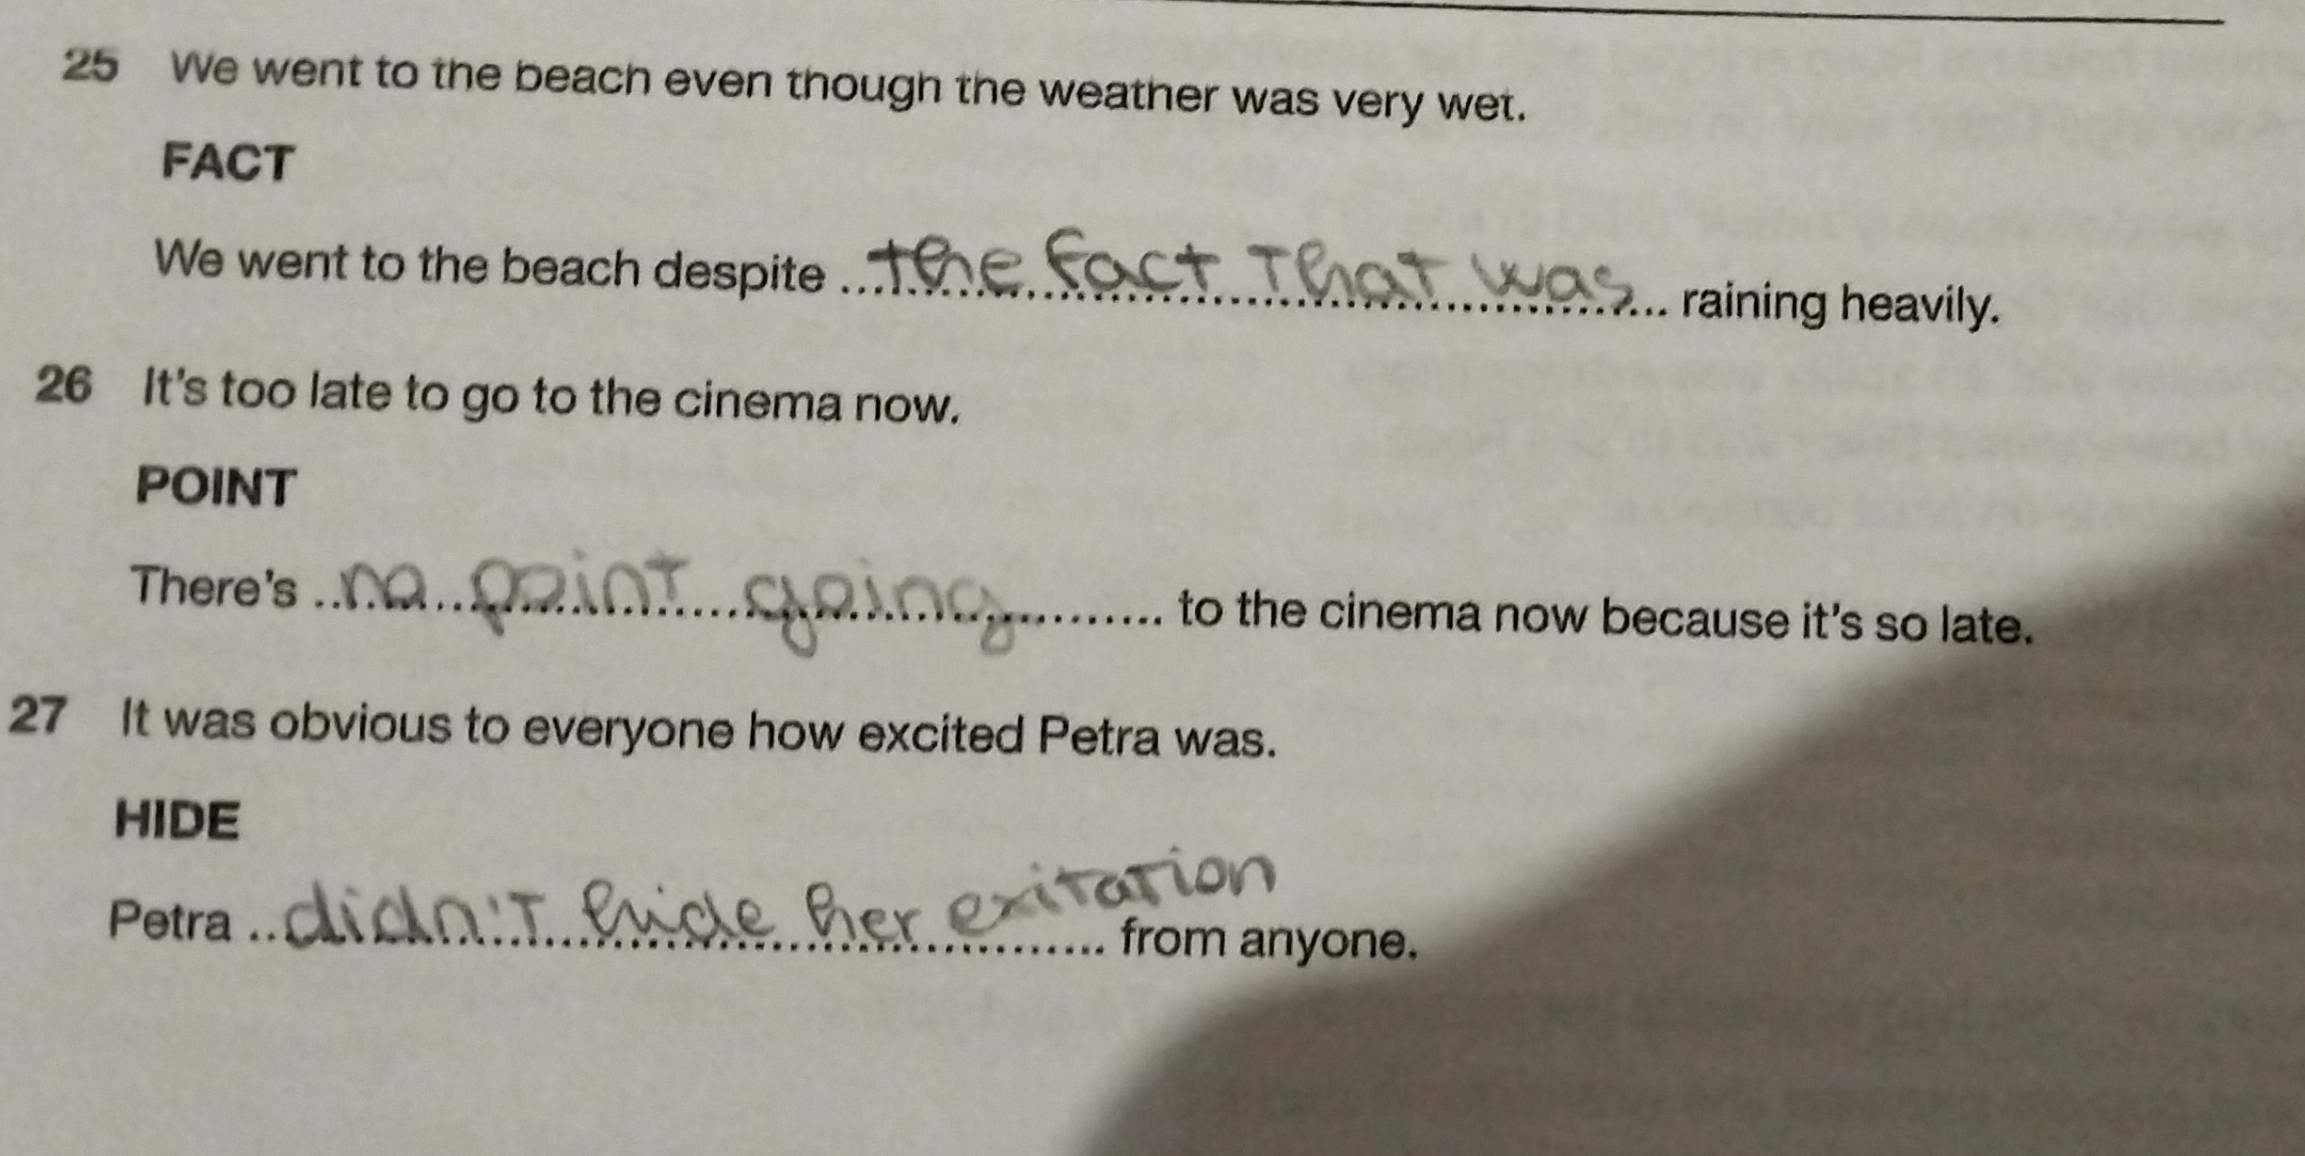 25 We went to the beach even though the weather was very wet.
FACT
We went to the beach despite ... the fact that was ... raining heavily.
26 It's too late to go to the cinema now.
POINT
There's ... no point going ... to the cinema now because it's so late.
27 It was obvious to everyone how excited Petra was.
HIDE
Petra ... didn't hide her exitation ... from anyone.